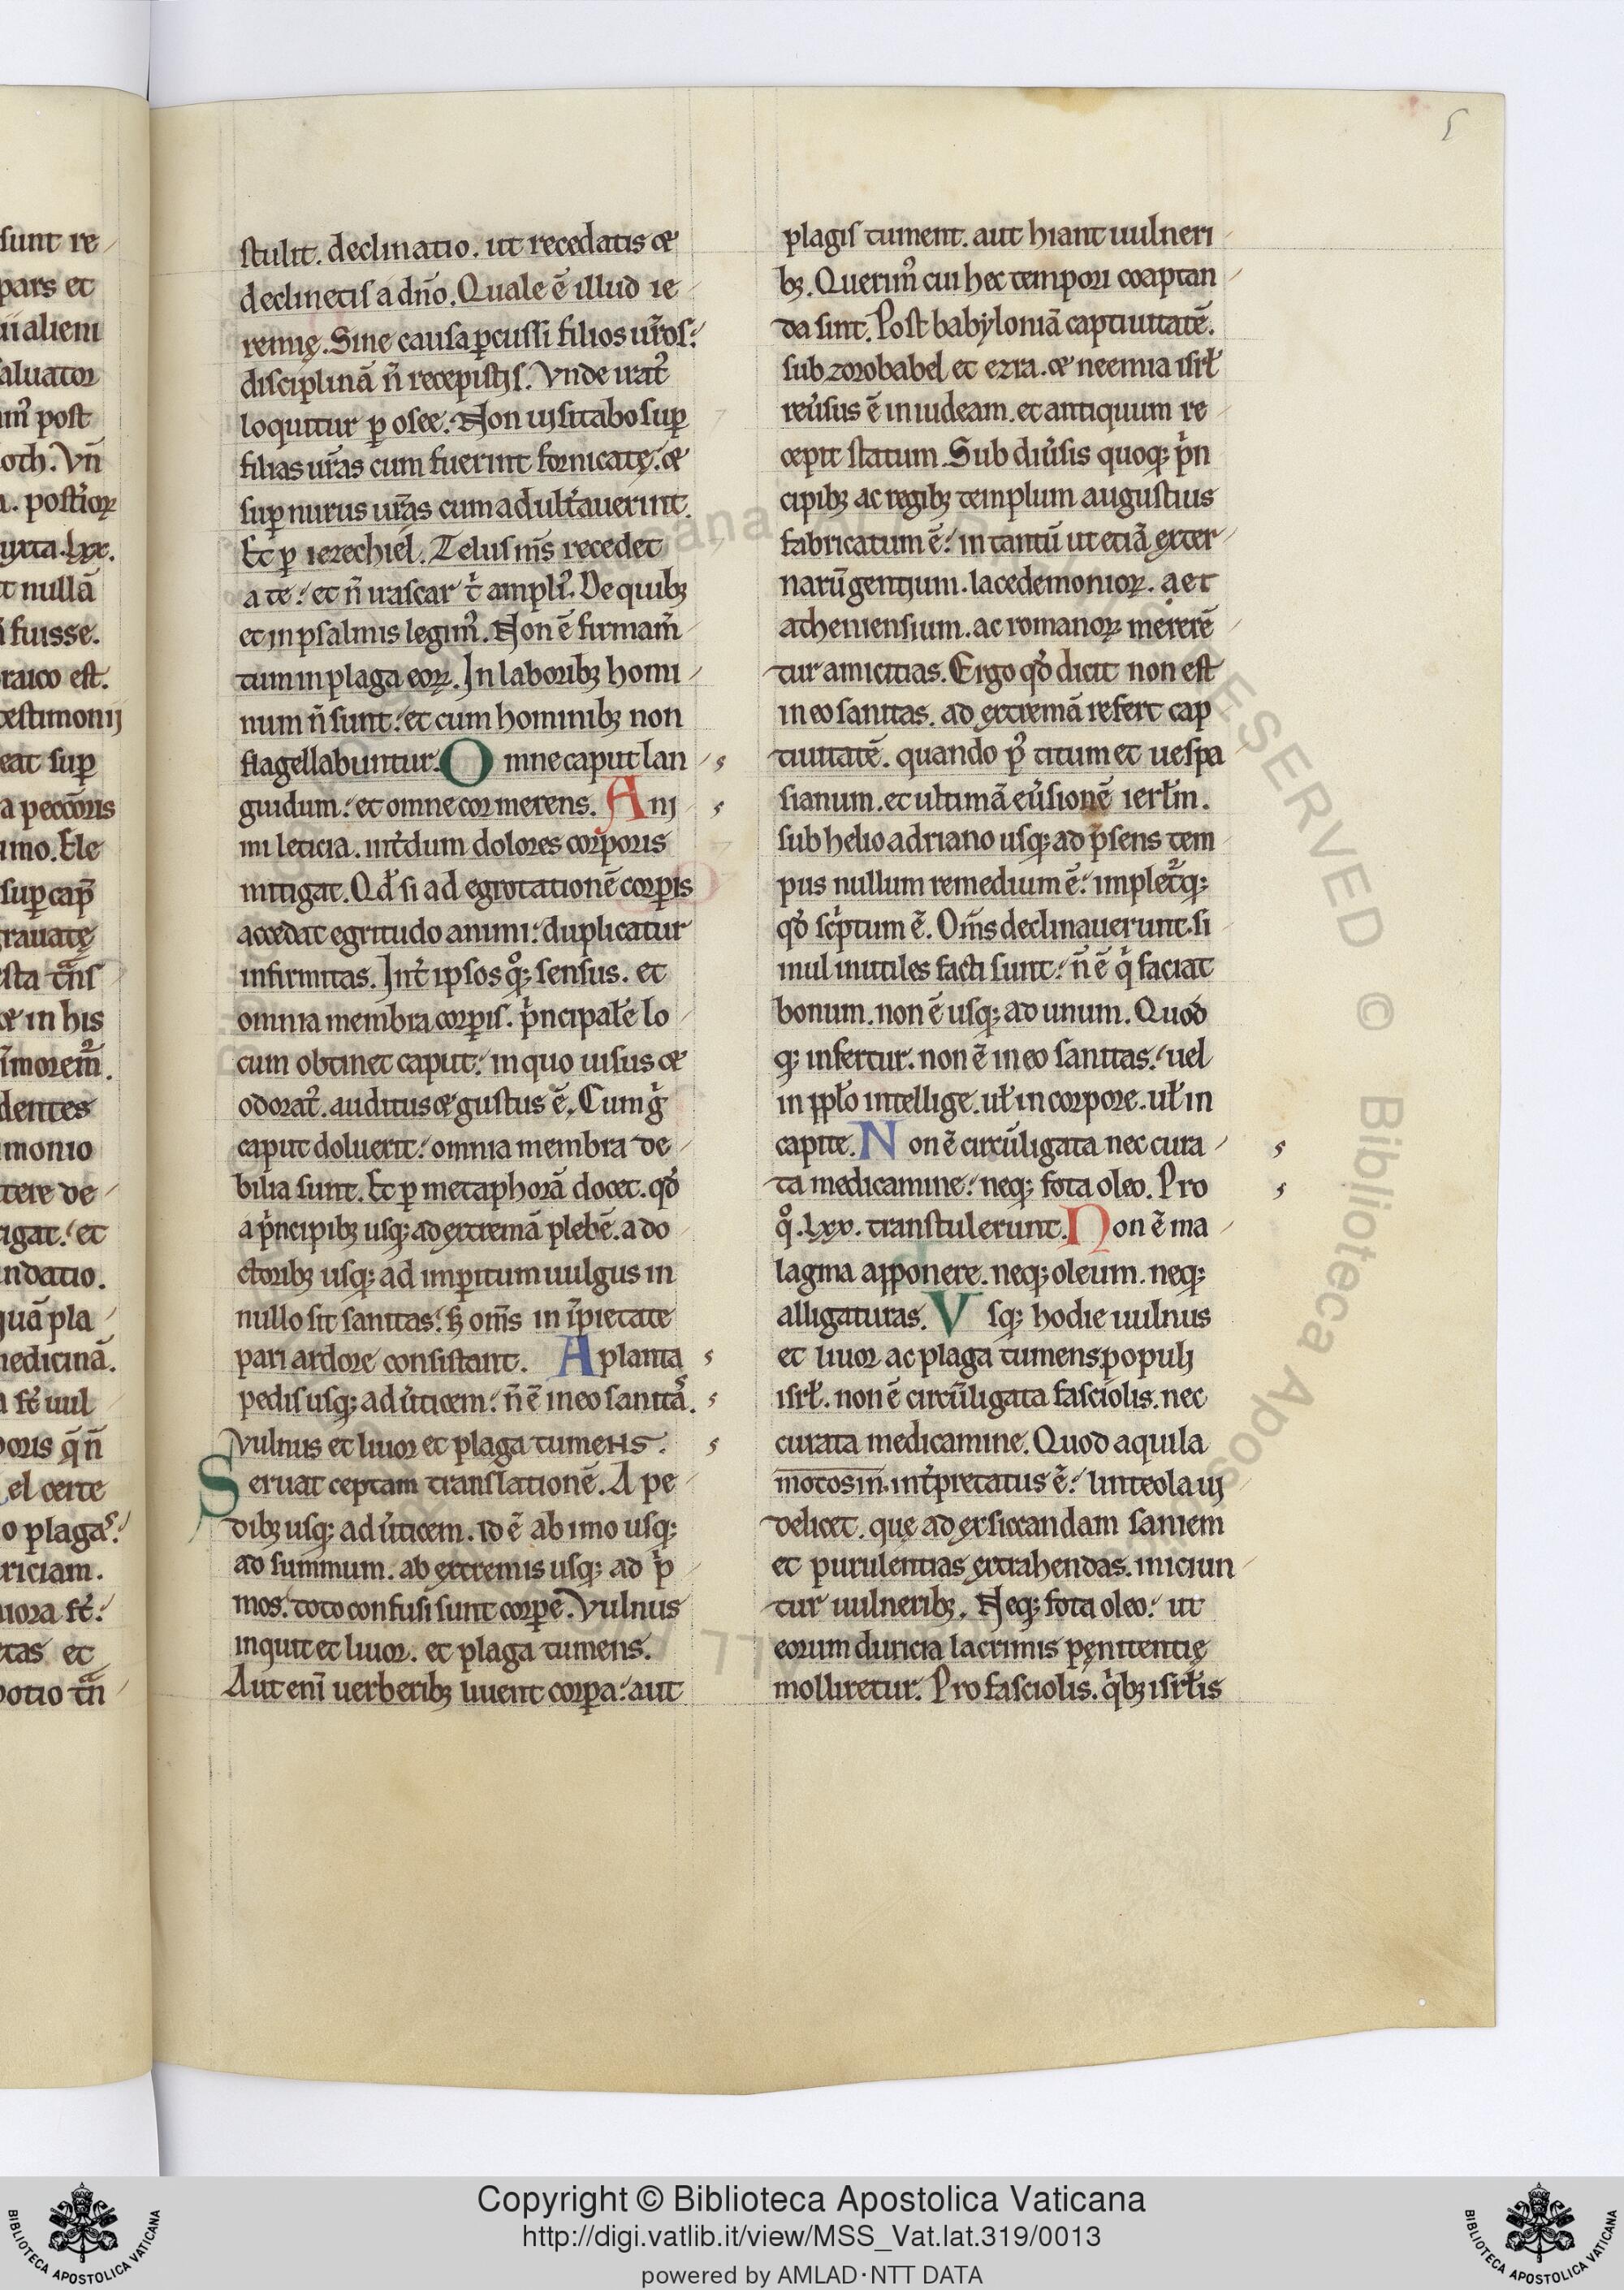 5
sunt re
pars et
ii alieni
aluator
im᷒ post
oth. Vn̄
yxta. lxx.
t nullā
fuisse.
raico est.
testimonij
eat sup̱
a peccōris
imo. Ele
grauatę
sta tn̄s
in his
dentes
monio
tere de
igat. et
ndatio.
quā pla
nedicinā.
oris
el certe
o plagas
riciam.
tas et
otio
stulit. declinatio. ut recedatis &
declinetis a dn̄o. Quale ē illud ie
remię. Sine causa ꝑcussi filios ur̄os:
disciplinā n̄ recepistis. Vnde irat᷒
loquitur ꝑ osee. Non uisitabo suꝑ
filias ur̄as cum fuerint fornicatę. &
suꝑ nurus ur̄as cum adult̄auerint.
Et ꝑ iezechiel. Zelus m̄s recedet
a te: et n̄ irascar t̄ ampli᷒. De quibꝫ
et in psalmis legim᷒. Non ē firmam̄
tum in plaga eoꝝ. In laboribꝫ homi
num n̄ sunt: et cum hominibꝫ non
flagellabuntur. Omne caput lan
guidum: et omne cor merens. Ani
mi leticia. int̄dum dolores corporis
mitigat. Qd̄ si ad egrotationē corꝑis
accedat egritudo animi: duplicatur
infirmitas. Int̄ ipsos qͦꝫ sensus. et
omnia membra corꝑis. pͥncipale lo
cum obtinet caput: in quo uisus &
odorat᷒. auditus & gustus ē. Cum gͥ
caput doluerit: omnia membra de
bilia sunt. Et ꝑ metaphorā docet. qd̄
a pͥncipibꝫ usqꝫ ad extremā plebē. a do
ctoribꝫ usqꝫ ad imꝑitum uulgus in
nullo sit sanitas: sꝫ om̄s in īpietate
pari ardore consistant. A planta
pedis usqꝫ ad ūticem: n̄ ē in eo sanitas.
Vulnus et liuor et plaga tumens.
Seruat ceptam translationē. A pe
dibꝫ usqꝫ ad ūticem. id ē ab imo usqꝫ
ad summum. ab extremis usqꝫ ad pͥ
mos. toto confusi sunt corꝑe. Vulnus
inquit et liuor. et plaga tumens.
Aut eni᷒ uerberibꝫ liuent corꝑa: aut
plagis tument. aut hiant uulneri
bꝫ. Querim᷒ cui hec tempori coaptan
da sint. Post babyloniā captiuitatē.
sub zorobabel et ezra. & neemia isrł
reūsus ē in iudeam. et antiquum re
cepit statum. Sub diūsis quoqꝫ pͥn
cipibꝫ ac regibꝫ templum augustius
fabricatum ē: in tantū ut etiā exter
narū gentium. lacedemonioꝝ. a et
atheniensium. ac romanoꝝ mererē
tur amicitias. Ergo qd̄ dicit non est
in eo sanitas. ad extremā refert cap
tiuitatē. quando p᷒ titum et uespa
sianum. et ultimā eūsionē ierłm.
sub helio adriano usqꝫ ad p̄sens tem
pus nullum remedium ē: impletᷣqꝫ
qd̄ scͥptum ē. Om̄s declinauerunt. si
mul inutiles facti sunt: n̄ ē qͥ faciat
bonum. non ē usqꝫ ad unum. Quod
qꝫ infertur. non ē in eo sanitas: uel
in ppło intellige. uł in corpore. uł in
capite. Non ē circūligata nec cura
ta medicamine: neqꝫ fota oleo. Pro
qͦ. lxx. transtulerunt. Non ē ma
lagma apponere. neqꝫ oleum. neqꝫ
alligaturas. Vsqꝫ hodie uulnus
et liuor ac plaga tumens populi
isrł. non ē circūligata fasciolis. nec
curata medicamine. Quod aquila
motosin. int̄pretatus ē: linteola ui
delicet. quę ad exsiccandam saniem
et purulentias extrahendas. iniciun
tur uulneribꝫ. Neqꝫ fota oleo: ut
eorum duricia lacrimis pęnitentię
molliretur. Pro fasciolis. qͥbꝫ isrłis
Copyright © Biblioteca Apostolica Vaticana
http://digi.vatlib.it/view/MSS_Vat.lat.319/0013
powered by AMLAD·NTT DATA
BIBLIOTECA APOSTOLICA VATICANA
BIBLIOTECA APOSTOLICA VATICANA